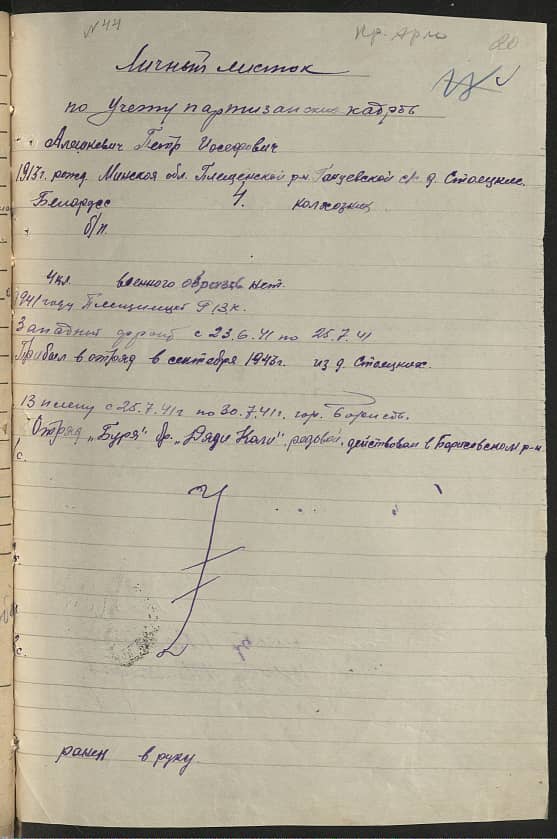 № 44
20
Личный листок
по учету партизанских кадров
Петр Иосефович
1913 г. рожд. Минской обл. Плещенской р-н. с/с д. Стаецкие.
Белорус Ч. колхозник
б/п.
4 кл. военного образов. нет.
1941 году РВК.
Западный фронт с 23.6.41 по 25.7.41
Прибыл в отряд в сентября 1943 г. из д. Стаецких.
В плену с 25.7.41 г по 30.7.41 г. гор. Борисов.
Отряд "Буря" бр. "Дяди Коли" рядовой, действовал в Борисовском р-н.
ранен в руку.